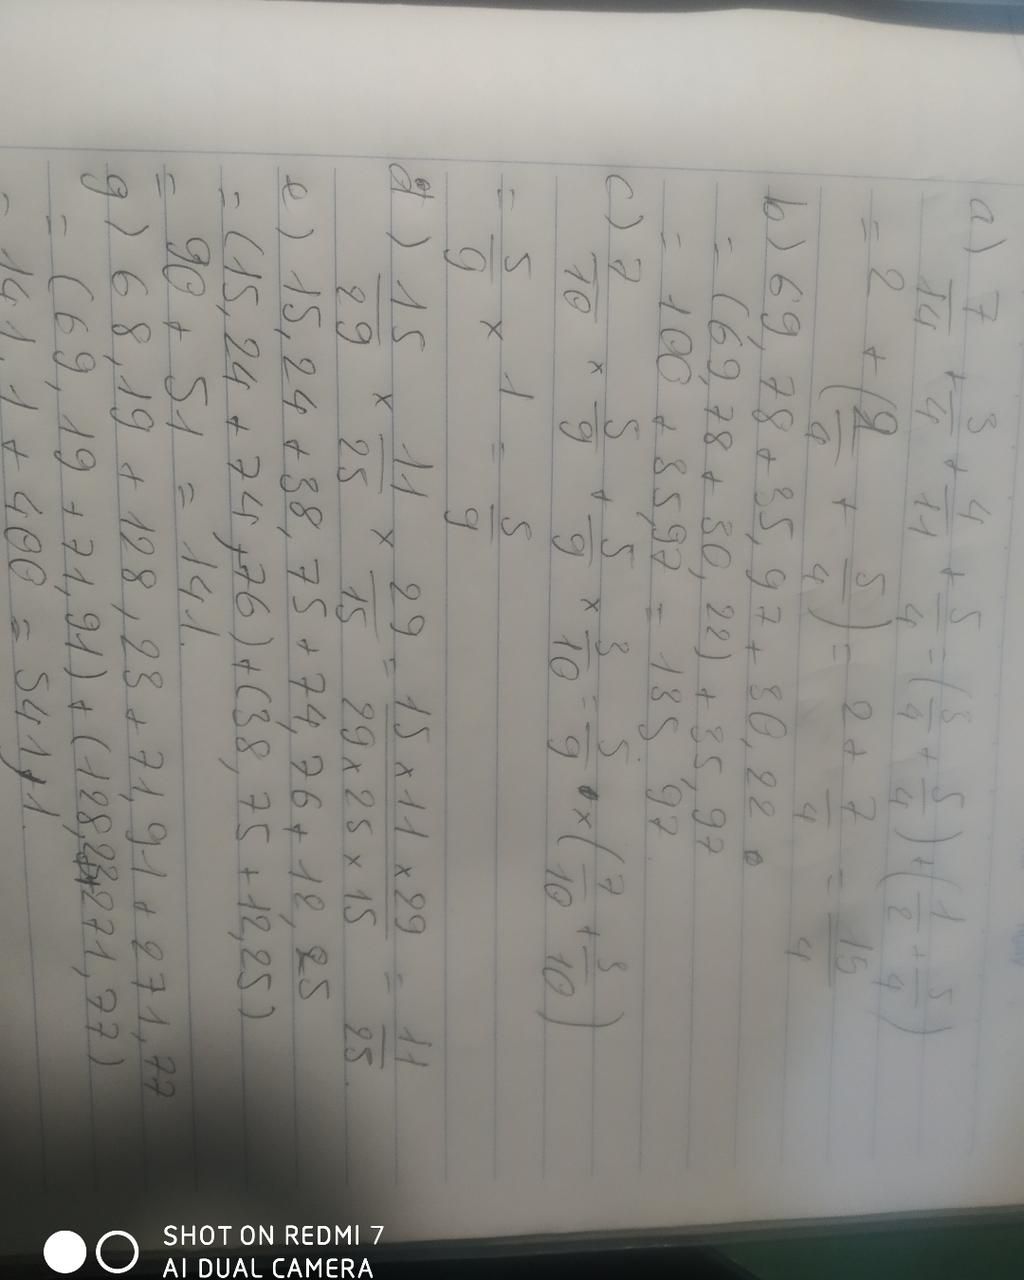 a) 7/14 + 3/4 + 4/11 + 5/4 = (3/4 + 5/4) + (1/2 + 5/4)
= 2 + (2/4 + 5/4) = 2 + 7/4 = 15/4
b) 69,78 + 35,97 + 30,22
= (69,78 + 30,22) + 35,97
= 100 + 35,97 = 135,97
c) 7/10 × 5/9 + 5/9 × 3/10 = 5/9 × (7/10 + 3/10)
= 5/9 × 1 = 5/9
d) 15/29 × 11/25 × 29/15 = 15×11×29/29×25×15 = 11/25
e) 15,24 + 38,75 + 74,76 + 12,25
= (15,24 + 74,76) + (38,75 + 12,25)
= 90 + 51 = 141
g) 68,19 + 128,23 + 71,91 + 271,77
= (69,19 + 71,91) + (128,23 + 271,77)
= 141,1 + 400 = 541,1
SHOT ON REDMI 7
AI DUAL CAMERA